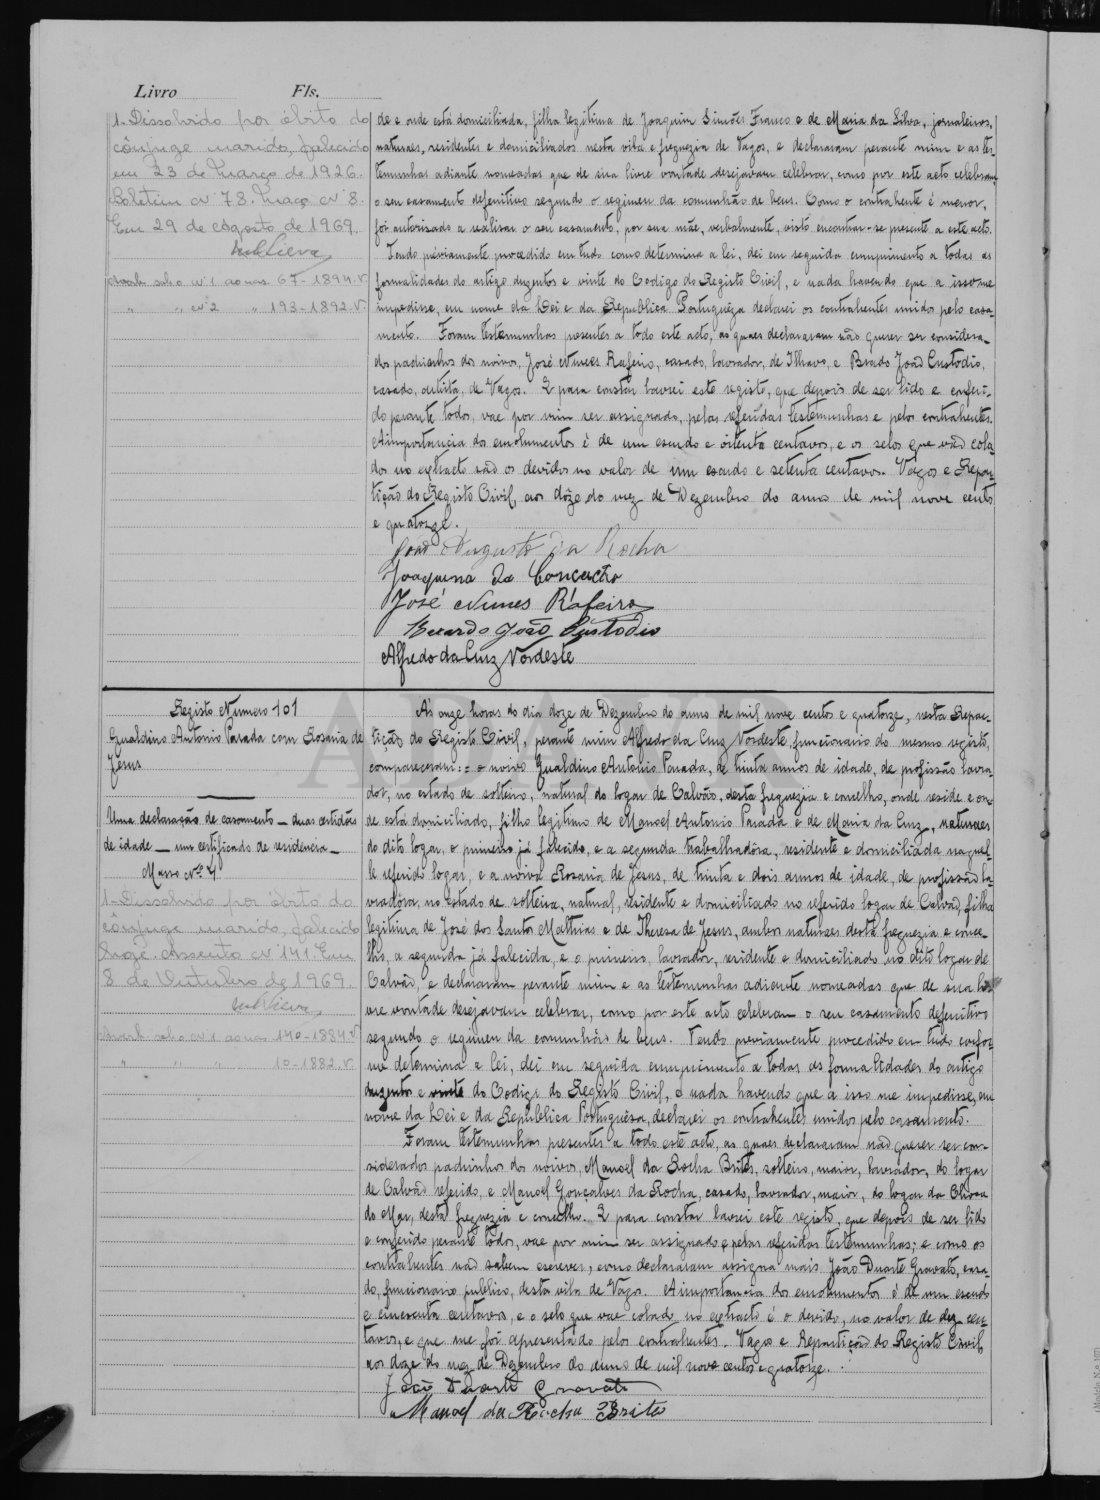 Livro Fls.
1- Dissolvido por óbito do
cônjuge marido, falecido
em 23 de Março de 1926.
Boletim nº 78. Maço nº 8.
Em 29 de Agosto de 1969.
Averb. sob o nº 1 ao nas. 67-1894.
" " nº 2 " 193-1892.
de e onde está domiciliada, filha legitima de Joaquim Simões Franco e de Maria da Silva, jornaleiros,
naturaes, residentes e domiciliados nesta vila e freguezia de Vagos, e declararam perante mim e as tes-
temunhas adiante nomeadas que de sua livre vontade desejavam celebrar, como por este acto celebram
o seu casamento defenitivo segundo o regimen da comunhão de bens. Como o contrahente é menor,
foi autorisado a realisar o seu casamento, por sua mãe, verbalmente, visto encontrar-se presente a este acto.
Tendo préviamente procedido em tudo como determina a lei, dei em seguida cumprimento a todas as
formalidades do artigo duzentos e vinte do Codigo do Registo Civil, e nada havendo que a isso me
impedisse, em nome da Lei e da Republica Portuguêza declarei os contrahentes unidos pelo casa-
mento. Foram testemunhas presentes a todo este acto, as quaes declararam não querer ser considera-
dos padrinhos dos noivos, José Nunes Rafeiro, casado, lavrador, de Ilhavo, e João Custodio,
casado, de Vagos. E para constar lavrei este registo, que depois de ser lido e conferi-
do perante todos, vae por mim ser assignado, pelas referidas testemunhas e pelos contrahentes.
A importancia dos emolumentos é de um escudo e oitenta centavos, e os selos que vão cola-
dos no extracto são os devidos no valor de um escudo e setenta centavos. Vagos e Repar-
tição do Registo Civil, aos dôze do mez de Dezembro do anno de mil nove centos
e quatorze.
João Augusto da Rocha
Joaquina da Conceição
José Nunes Rafeiro
João Custodio
Alfredo da Cruz Nordeste
Registo Numero 101
Gualdino Antonio Parada com Rosaria de
Jesus
Uma declaração de casamento - duas certidões
de idade - um certificado de residencia -
Masso Nº 4
1- Dissolvido por óbito do
cônjuge marido, falecido
hoje. Assento nº 141. Em
8 de Outubro de 1969.
Averb. sob o nº 1 ao nas. 140-1884.
" " 10-1882.
Ás onze horas do dia doze de Dezembro do anno de mil nove centos e quatorze, nesta Repar-
tição do Registo Civil, perante mim Alfredo da Cruz Nordeste, funcionario do mesmo registo,
compareceram: = o noivo Gualdino Antonio Parada, de trinta annos de idade, de profissão lavra-
dor, no estado de solteiro, natural do logar de Calvão, desta freguezia e concelho, onde reside e on-
de está domiciliado, filho legitimo de Manoel Antonio Parada e de Maria da Cruz, naturaes
do dito logar, o primeiro já falecido, e a segunda trabalhadôra, residente e domiciliada naquel-
le referido logar, e a noiva Rosaria de Jesus, de trinta e dois annos de idade, de profissão la-
vradôra, no estado de solteira, natural, residente e domiciliado no referido logar de Calvão, filha
legitima de José dos Santos Mathias e de Thereza de Jesus, ambos naturaes desta freguezia e conce-
lho, a segunda já falecida, e o primeiro, lavrador, residente e domiciliado no dito logar de
Calvão, e declararam perante mim e as testemunhas adiante nomeadas que de sua li-
vre vontade desejavam celebrar, como por este acto celebram o seu casamento defenitivo
segundo o regimen da comunhão de bens. Tendo préviamente procedido em tudo confor-
me determina a lei, dei em seguida cumprimento a todas as formalidades do artigo
duzentos e vinte do Codigo do Registo Civil, e nada havendo que a isso me impedisse, em
nome da Lei e da Republica Portuguêza, declarei os contrahentes unidos pelo casamento.
Foram testemunhas presentes a todo este acto, as quaes declararam não querer ser con-
siderados padrinhos dos noivos, Manoel da Rocha Brites, solteiro, maior, lavrador, do logar
de Calvão referido, e Manoel Gonçalves da Rocha, casado, lavrador, maior, do logar da
do Mar, desta freguezia e concelho. E para constar lavrei este registo, que depois de ser lido
e conferido perante todos, vae por mim ser assignado e pelas referidas testemunhas; e como os
contrahentes não sabem escrever, como declararam assigna mais João Duarte Gravato, casa-
do, funcionario publico, desta vila de Vagos. A importancia dos emolumentos é de um escudo
e cincoenta centavos, e o selo que vae colado no extracto é o devido, no valor de dez cen-
tavos, e que me foi apresentado pelos contrahentes. Vagos e Repartição do Registo Civil,
aos doze do mez de Dezembro do anno de mil nove centos e quatorze.
João Duarte Gravato
Manoel da Rocha Brites